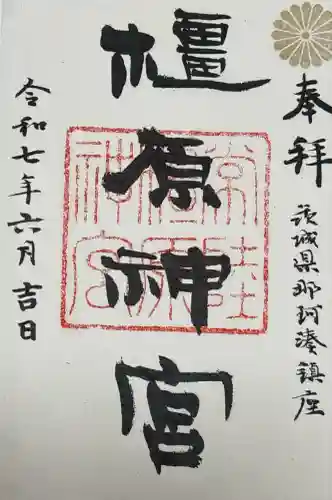 奉拝
茨城県那珂湊鎮座
橿原神宮
常陸
橿原
神宮
令和七年六月吉日